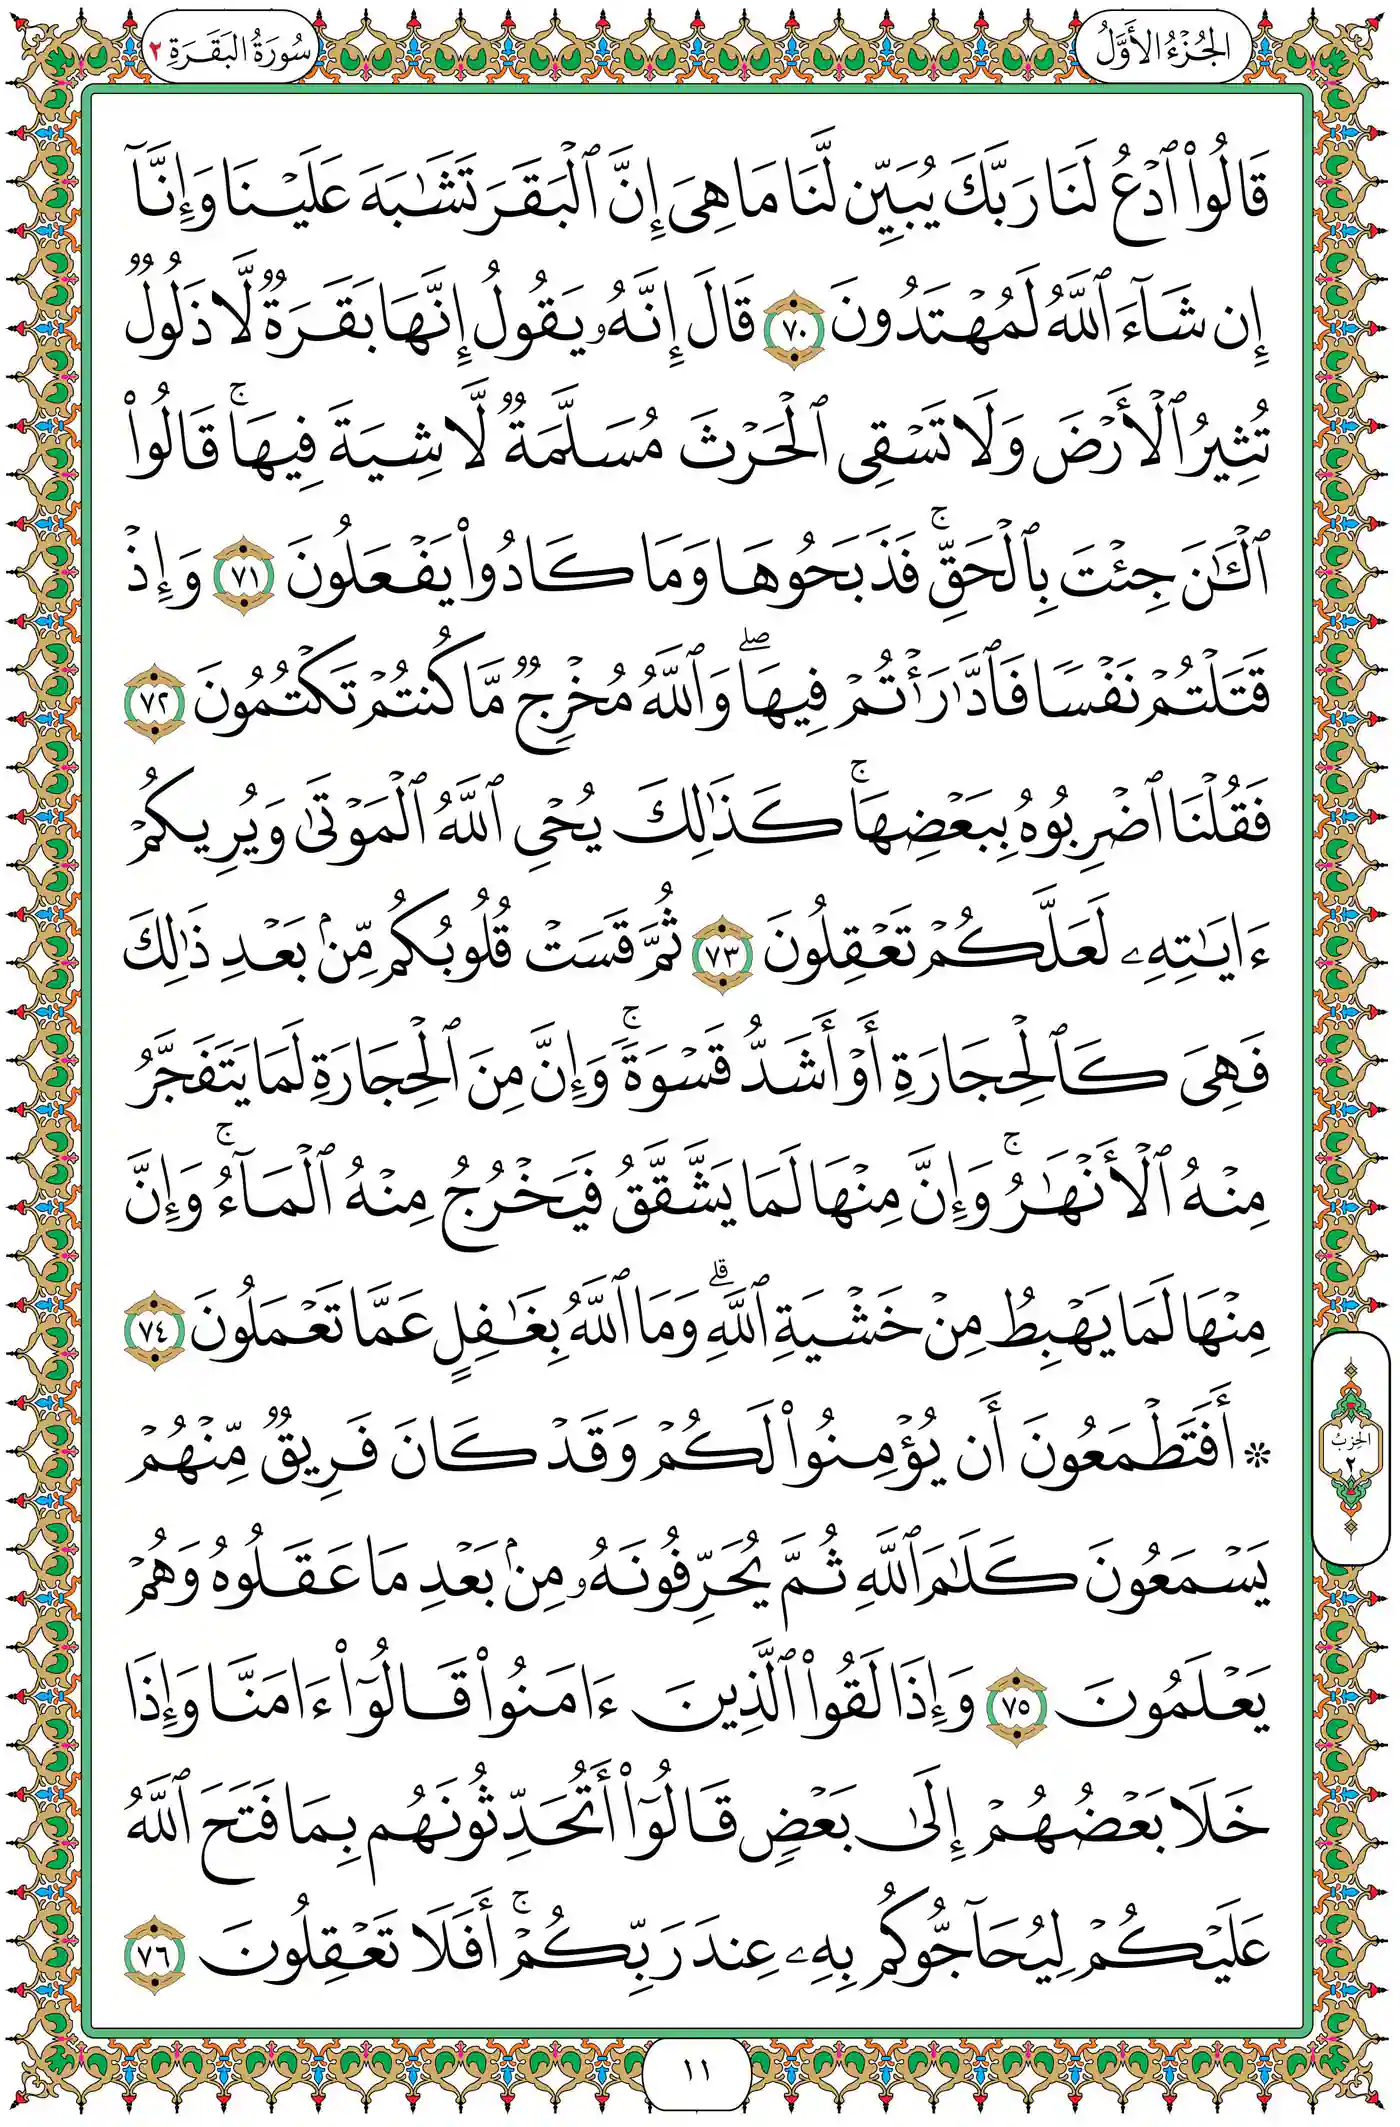 الجُزْءُ الأَوَّلُ
سُورَةُ البَقَرَةِ ٢
قَالُوا۟ ٱدۡعُ لَنَا رَبَّكَ يُبَيِّن لَّنَا مَا هِىَ إِنَّ ٱلۡبَقَرَ تَشَٰبَهَ عَلَيۡنَا وَإِنَّآ
إِن شَآءَ ٱللَّهُ لَمُهۡتَدُونَ ٧٠ قَالَ إِنَّهُۥ يَقُولُ إِنَّهَا بَقَرَةٌ لَّا ذَلُولٌ
تُثِيرُ ٱلۡأَرۡضَ وَلَا تَسۡقِى ٱلۡحَرۡثَ مُسَلَّمَةٌ لَّا شِيَةَ فِيهَاۚ قَالُوا۟
ٱلۡـَٰٔنَ جِئۡتَ بِٱلۡحَقِّۚ فَذَبَحُوهَا وَمَا كَادُوا۟ يَفۡعَلُونَ ٧١ وَإِذۡ
قَتَلۡتُمۡ نَفۡسًا فَٱدَّٰرَٰٔتُمۡ فِيهَاۖ وَٱللَّهُ مُخۡرِجٌ مَّا كُنتُمۡ تَكۡتُمُونَ ٧٢
فَقُلۡنَا ٱضۡرِبُوهُ بِبَعۡضِهَاۚ كَذَٰلِكَ يُحۡىِ ٱللَّهُ ٱلۡمَوۡتَىٰ وَيُرِيكُمۡ
ءَايَٰتِهِۦ لَعَلَّكُمۡ تَعۡقِلُونَ ٧٣ ثُمَّ قَسَتۡ قُلُوبُكُم مِّنۢ بَعۡدِ ذَٰلِكَ
فَهِىَ كَٱلۡحِجَارَةِ أَوۡ أَشَدُّ قَسۡوَةًۚ وَإِنَّ مِنَ ٱلۡحِجَارَةِ لَمَا يَتَفَجَّرُ
مِنۡهُ ٱلۡأَنۡهَٰرُۚ وَإِنَّ مِنۡهَا لَمَا يَشَّقَّقُ فَيَخۡرُجُ مِنۡهُ ٱلۡمَآءُۚ وَإِنَّ
مِنۡهَا لَمَا يَهۡبِطُ مِنۡ خَشۡيَةِ ٱللَّهِۗ وَمَا ٱللَّهُ بِغَٰفِلٍ عَمَّا تَعۡمَلُونَ ٧٤
۞ أَفَتَطۡمَعُونَ أَن يُؤۡمِنُوا۟ لَكُمۡ وَقَدۡ كَانَ فَرِيقٌ مِّنۡهُمۡ
يَسۡمَعُونَ كَلَٰمَ ٱللَّهِ ثُمَّ يُحَرِّفُونَهُۥ مِنۢ بَعۡدِ مَا عَقَلُوهُ وَهُمۡ
يَعۡلَمُونَ ٧٥ وَإِذَا لَقُوا۟ ٱلَّذِينَ ءَامَنُوا۟ قَالُوٓا۟ ءَامَنَّا وَإِذَا
خَلَا بَعۡضُهُمۡ إِلَىٰ بَعۡضٍ قَالُوٓا۟ أَتُحَدِّثُونَهُم بِمَا فَتَحَ ٱللَّهُ
عَلَيۡكُمۡ لِيُحَآجُّوكُم بِهِۦ عِندَ رَبِّكُمۡۚ أَفَلَا تَعۡقِلُونَ ٧٦
الحِزبُ
٢
١١